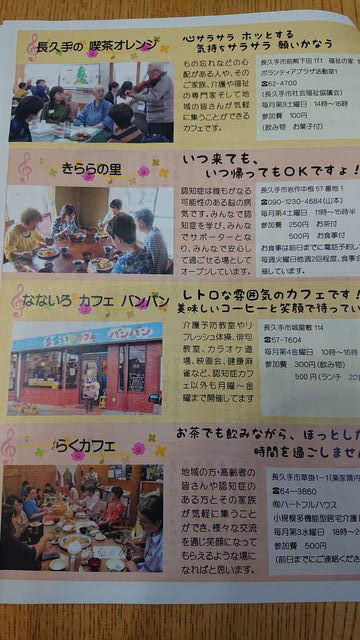 長久手の 喫茶オレンジ
心サラサラ ホッとする
気持ちサラサラ 願いかなう
もの忘れなどの心
配がある人や、その
ご家族、介護や福祉
の専門家そして地
域の皆さんが気軽
に集うことができる
カフェです。
長久手市前熊下田171 福祉の家
ボランティアプラザ活動室1
☎62-4700
(長久手市社会福祉協議会)
毎月第3土曜日 14時〜16時
参加費 100円
(飲み物 お菓子付)
きららの里
いつ来ても、
いつ帰ってもOKですょ!
認知症は誰もがなる
可能性のある脳の病
気です。みんなで認
知症を学び、みんな
でサポーターとな
り、みんなで安心し
て過ごせる場として
オープンしています。
長久手市岩作中根57番地1
☎090-1230-4684(山本)
毎月第4土曜日 11時〜15時半
参加費 250円 お茶付
500円 お食事付
お食事は前日までに電話予約し
毎週火曜日他週2回程度、食事会
催しています。
なないろ カフェ パンパン
レトロな雰囲気のカフェです!
美味しいコーヒーと笑顔で待ってい
なないろカフェ パンパン
介護予防教室やリ
フレッシュ体操、俳句
教室、カラオケ道
場、映画会、健康麻
雀など、認知症カフ
ェ以外も月曜〜金
曜まで開催してます
長久手市城屋敷114
☎57-7604
毎月第4金曜日 10時〜16時
参加費 300円(飲み物)
500円(ランチ 20
らくカフェ
お茶でも飲みながら、ほっとした
時間を過ごしませ
地域の方・高齢者の
皆さんや認知症の
ある方とその家族
が気軽に集うこと
ができ、様々な交流
を通じ笑顔になって
もらえるような場に
なればと思います。
長久手市草掛1-1(楽家晴内
☎64-3860
㈲ハートフルハウス
小規模多機能型居宅介護
毎月第3水曜日 18時〜2
参加費 500円
(前日までにご連絡くださ